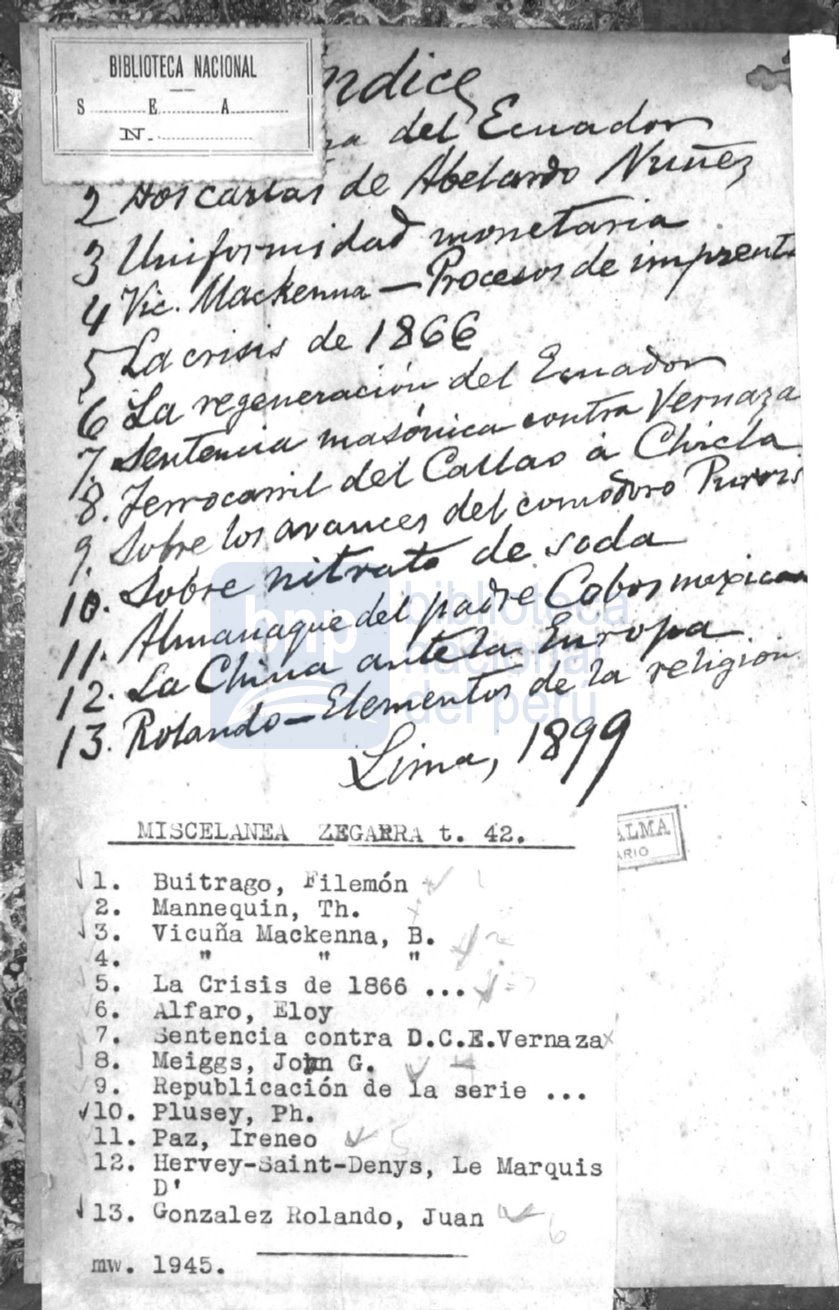 BIBLIOTECA NACIONAL
S E A
N.
ndice
del Ecuador
2 Dos cartas de Abelardo Nuñez
3 Uniformidad monetaria
4 Vic. Mackenna — Procesos de imprenta
5 La crisis de 1866
6 La regeneración del Ecuador
7. Sentencia masónica contra Vernaza
8. Ferrocarril del Callao á Chicla
9. Sobre los avances del comodoro Purvis
10. Sobre nitrato de soda
11. Almanaque del padre Cobos mexicano
12. La China ante la Europa
13. Rolando — Elementos de la religion
Lima, 1899
bnp biblioteca nacional del perú
MISCELANEA ZEGARRA t. 42.
ALMA
ARIO
1. Buitrago, Filemón
2. Mannequin, Th.
3. Vicuña Mackenna, B.
4. " " "
5. La Crisis de 1866 ...
6. Alfaro, Eloy
7. Sentencia contra D.C.E.Vernaza
8. Meiggs, John G.
9. Republicación de la serie ...
10. Plusey, Ph.
11. Paz, Ireneo
12. Hervey-Saint-Denys, Le Marquis
D'
13. Gonzalez Rolando, Juan
mw. 1945.